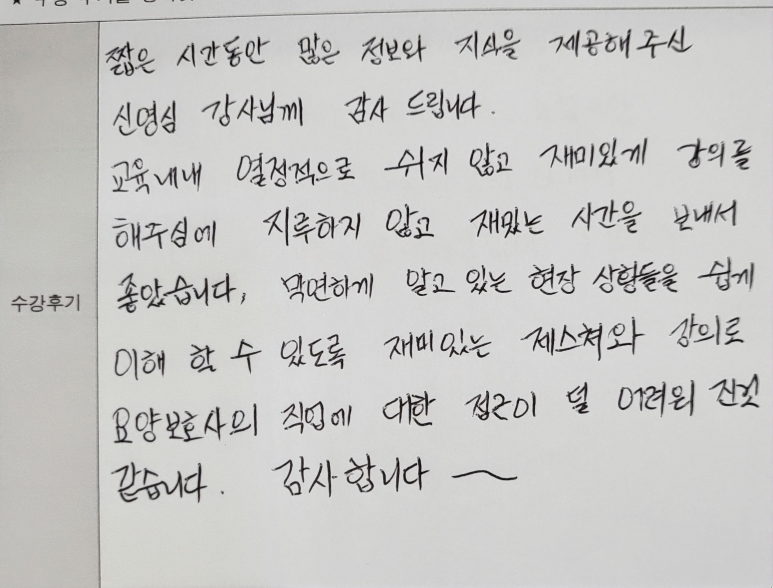 짧은 시간동안 많은 정보와 지식을 제공해 주신
신영심 강사님께 감사 드립니다.
교육내내 열정적으로 쉬지 않고 재미있게 강의를
해주심에 지루하지 않고 재밌는 시간을 보내서
좋았습니다, 막연하게 알고 있는 현장 상형들을 쉽게
수강후기
이해 할 수 있도록 재미있는 제스쳐와 강의로
요양보호사의 직업에 대한 접근이 덜 어려워 진것
같습니다. 감사합니다 ~